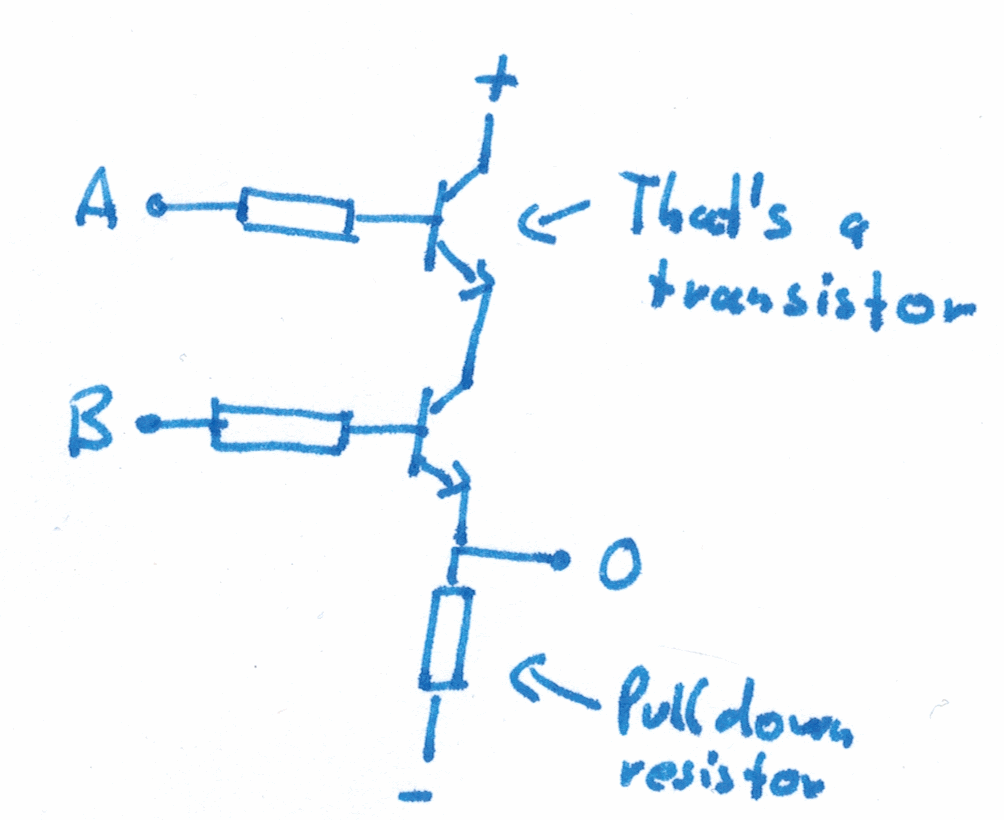 +
A
That's a
transistor
B
O
Pull down
resistor
-